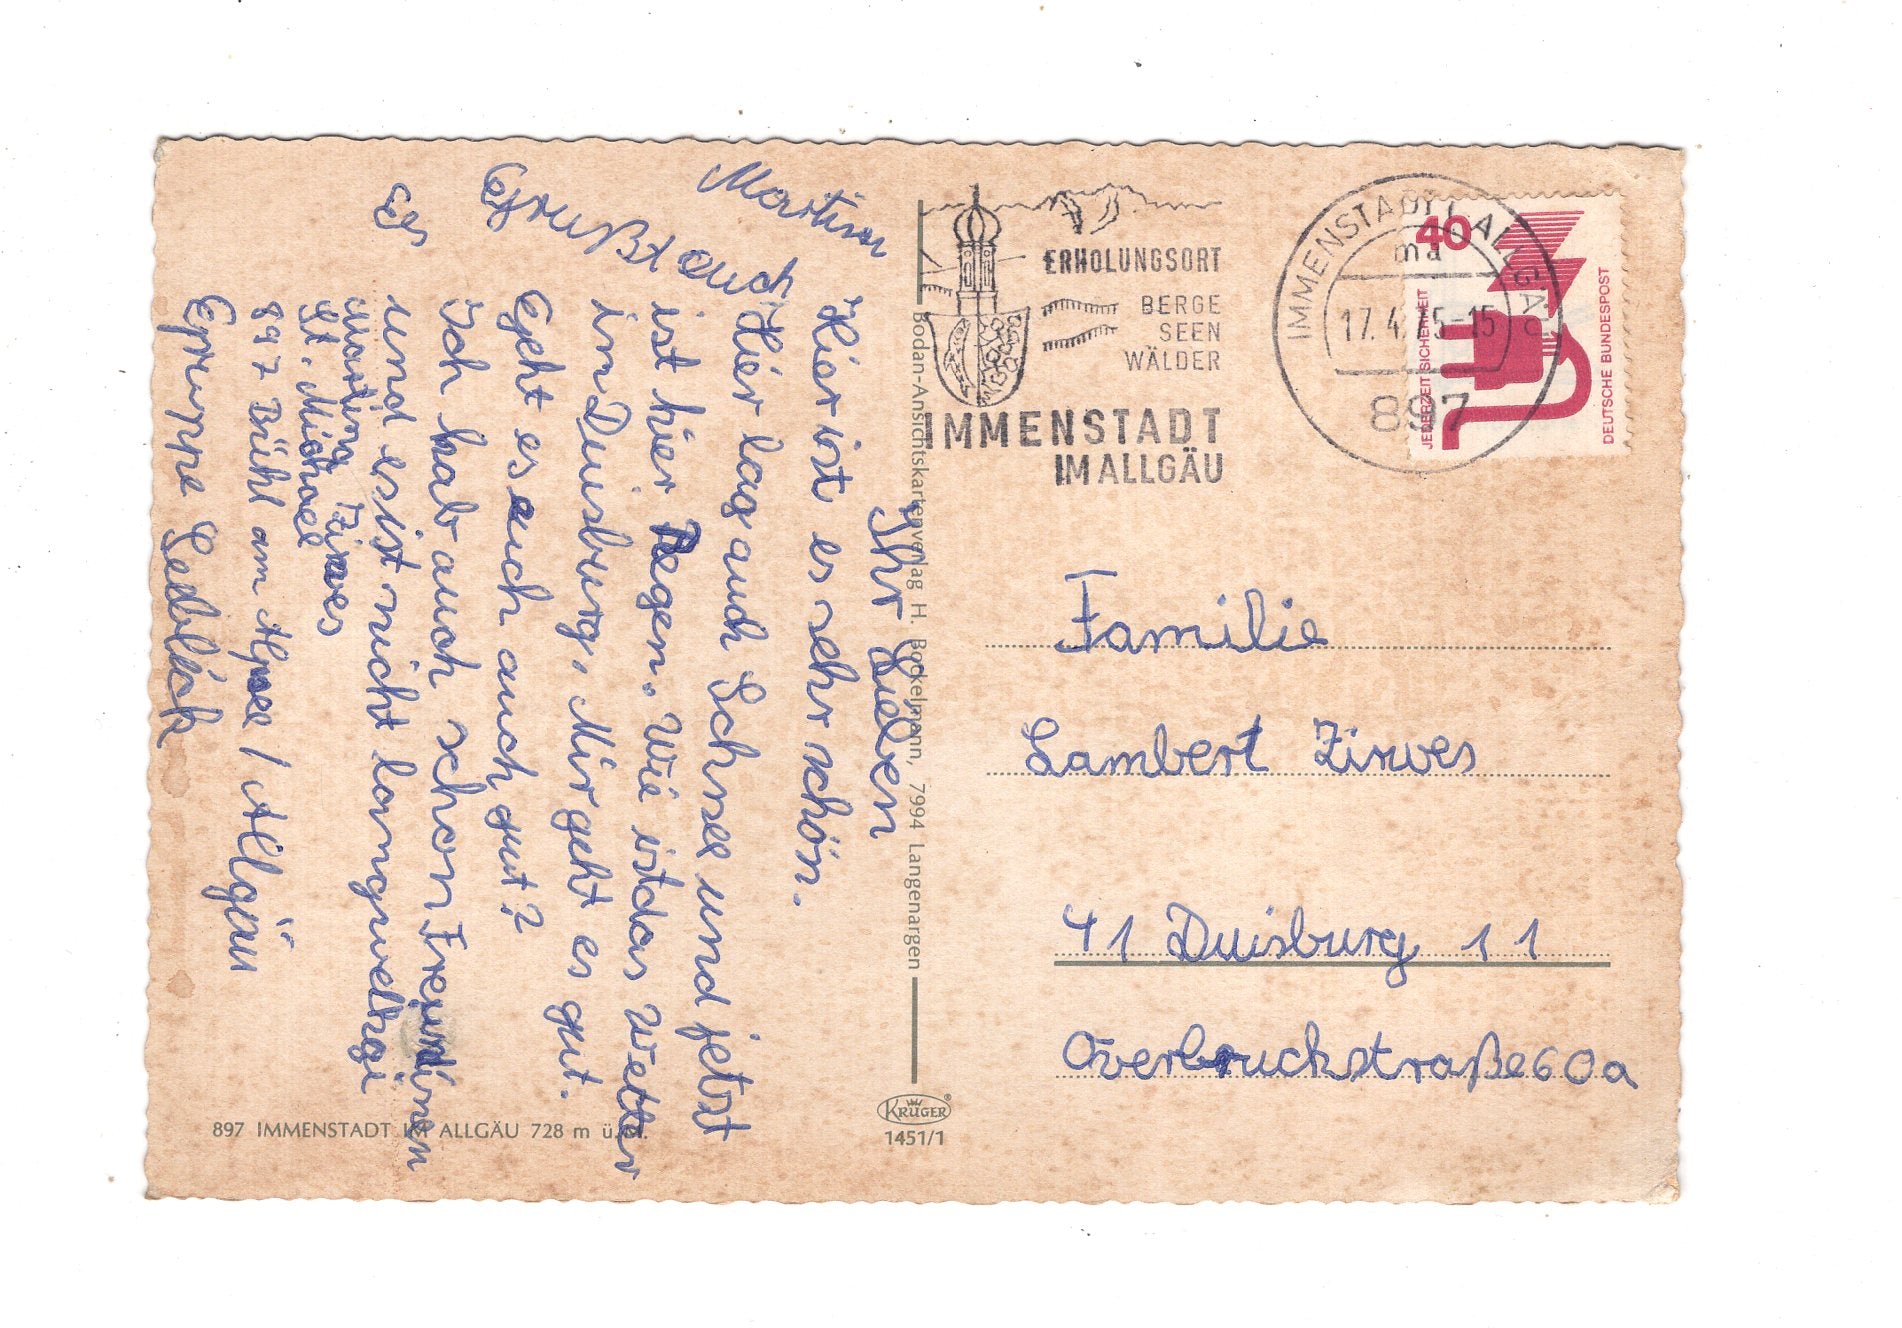 Ihr Lieben
Hier ist es sehr schön.
Hier lag auch Schnee und jetzt
ist hier Regen. Wie ist das Wetter
in Duisburg, Mir geht es gut.
Geht es euch auch gut?
Ich hab auch schon Freundinen
und es ist nicht langweilig
Es
Grußt euch
Martina
Martina Zirwes
St. Michael
897 Bühl am Alpsee / Allgäu
Gruppe Sedlák
Bodan-Ansichtskartenverlag H. Bockelmann, 7994 Langenargen
897 IMMENSTADT IM ALLGÄU 728 m ü. M.
KRÜGER®
1451/1
ERHOLUNGSORT
BERGE
SEEN
WÄLDER
IMMENSTADT
IM ALLGÄU
IMMENSTADT I ALLGÄU
ma
17.4.75-15
897
40
JEDERZEIT SICHERHEIT
DEUTSCHE BUNDESPOST
Familie
Lambert Zirwes
41 Duisburg 11
Overbruckstraße 60a